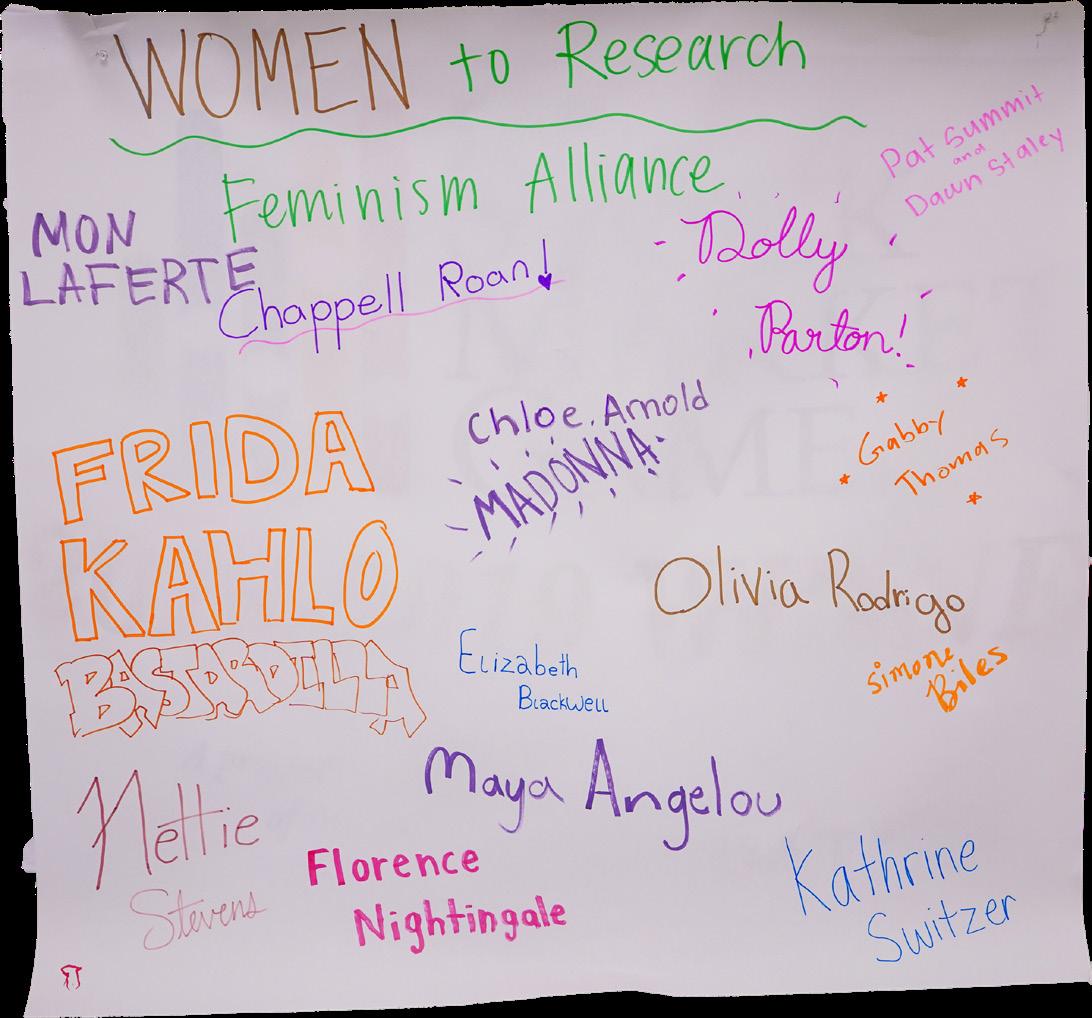 WOMEN to Research
Feminism Alliance
Pat Summit
and
Dawn Staley
MON
LAFERTE
Chappell Roan!
Dolly
Parton!
FRIDA
KAHLO
Chloe Arnold
MADONNA
Gabby
Thomas
BASTARDILLA
Elizabeth
Blackwell
Olivia Rodrigo
Simone
Biles
Maya Angelou
Nettie
Stevens
Florence
Nightingale
Kathrine
Switzer